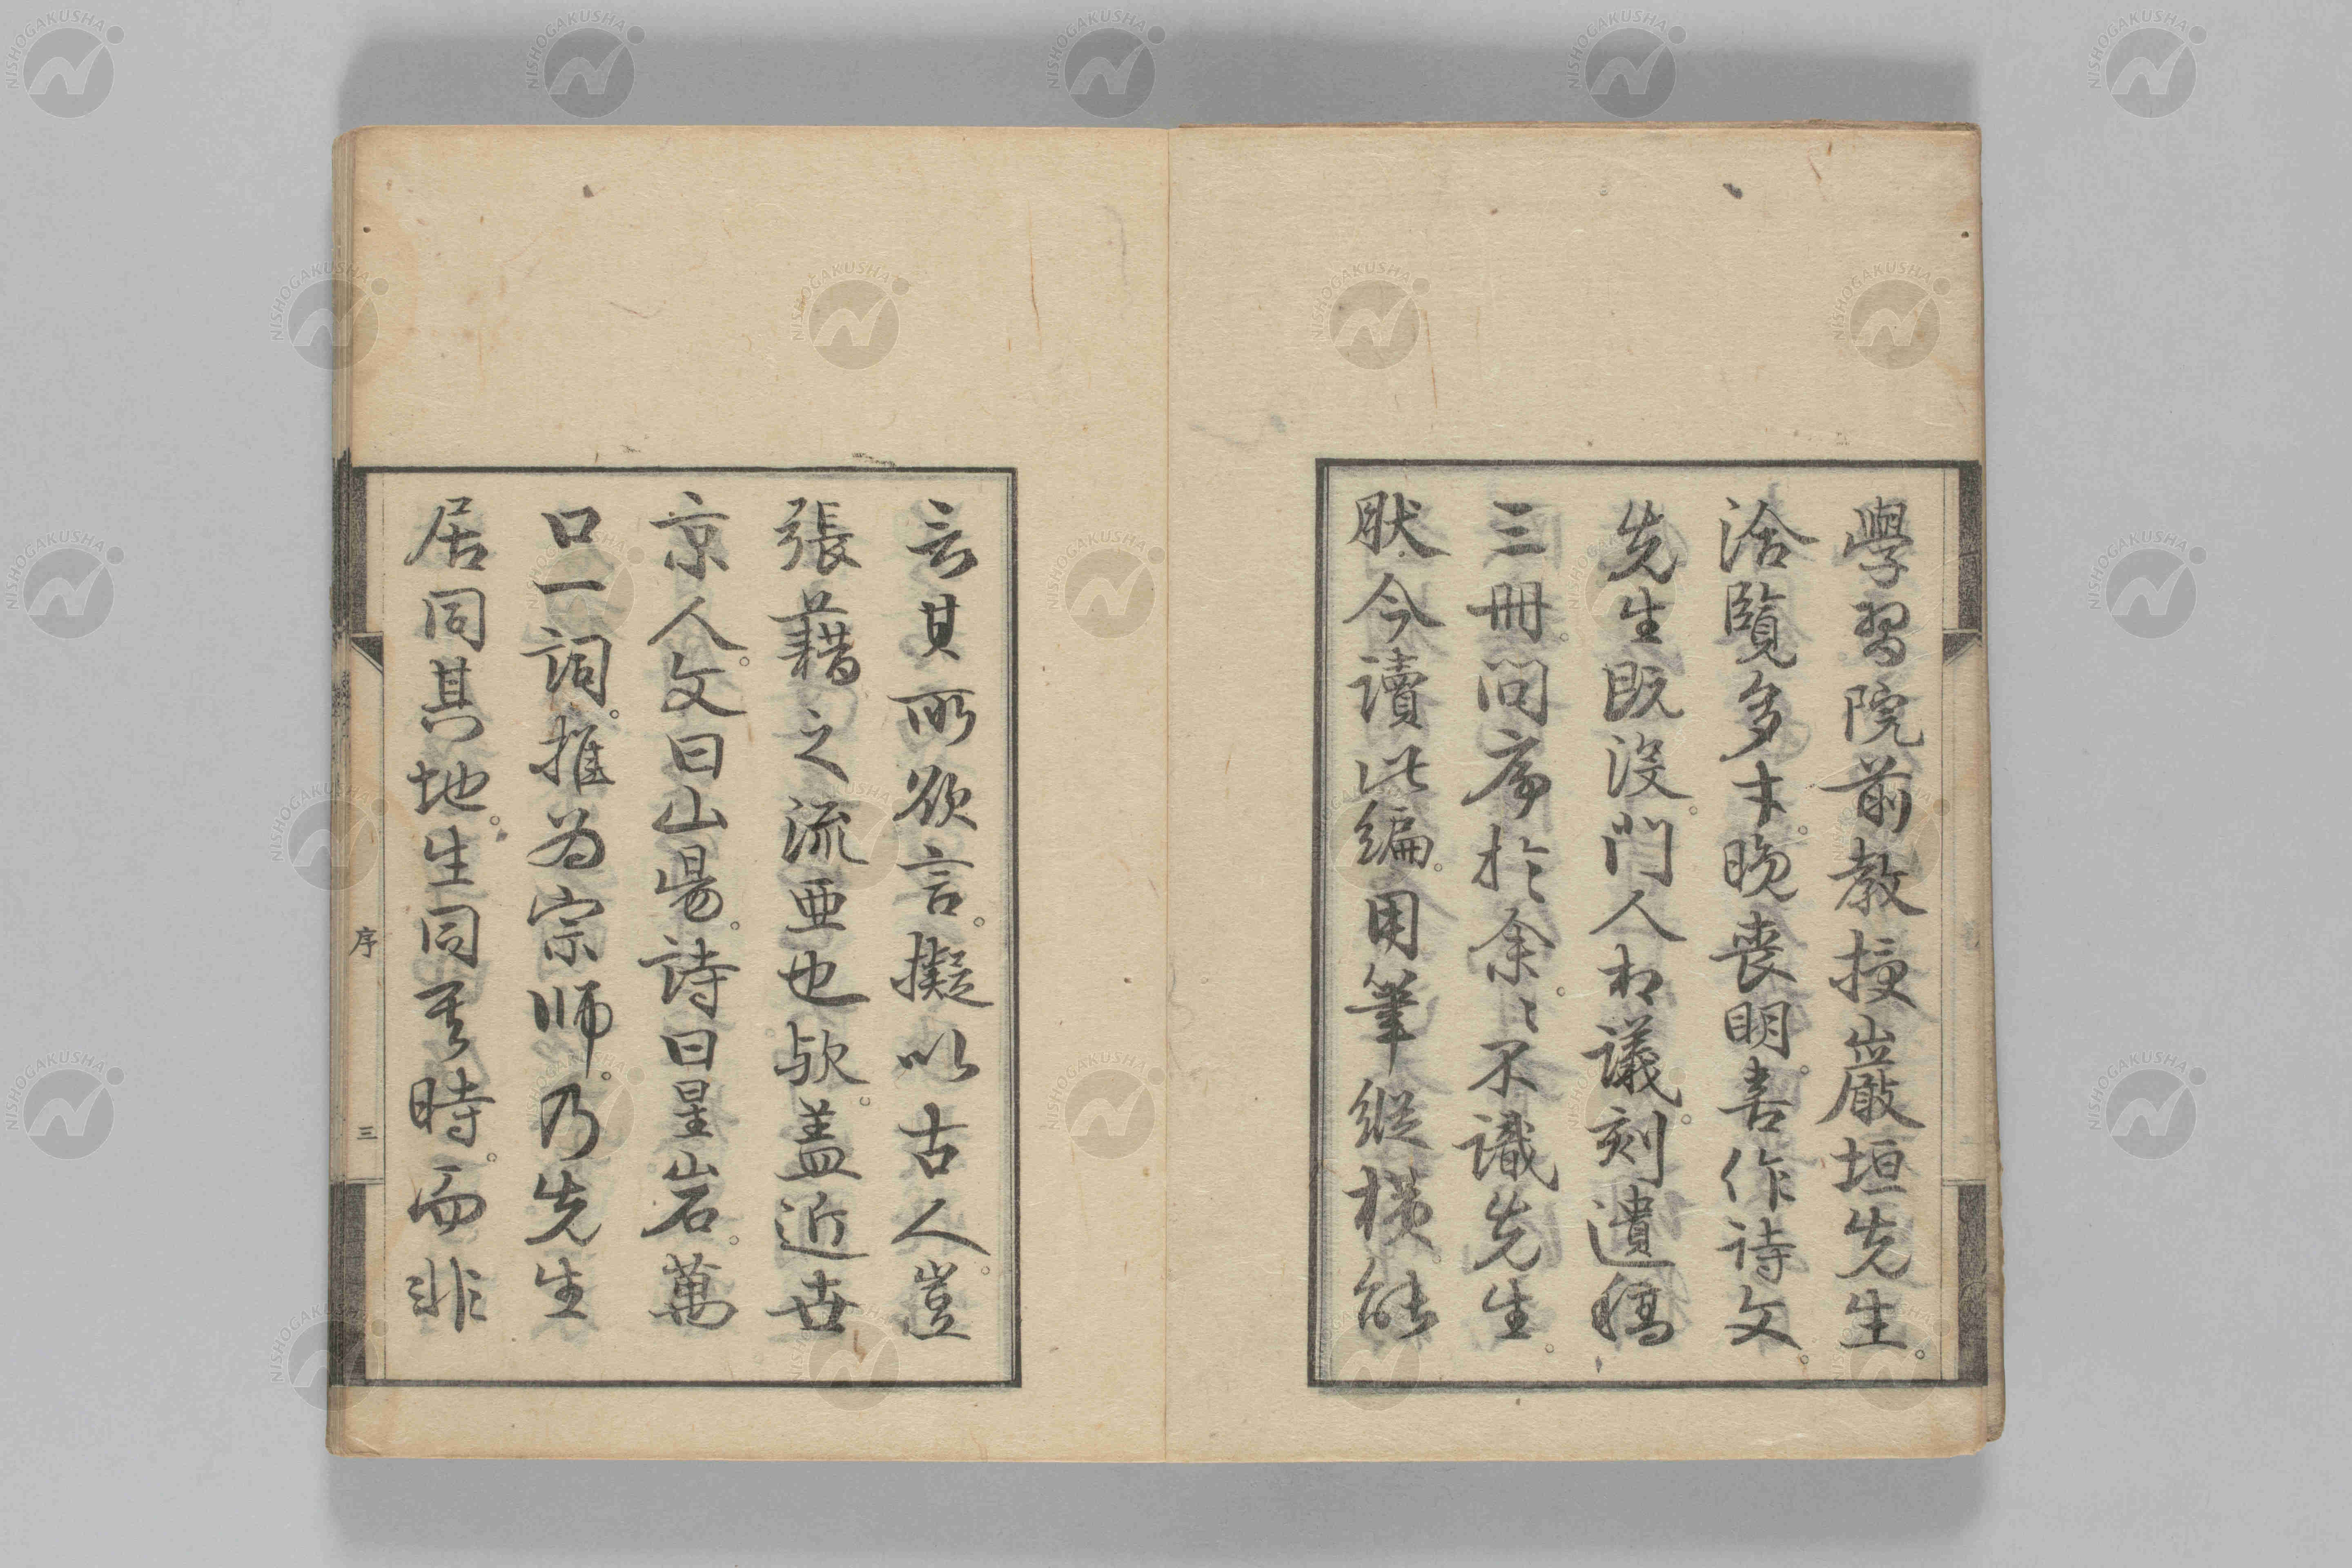 學習院前教授巖垣先生。
洽覽多才。晩喪明。喜作詩文。
先生既沒。門人相議。刻遺稿
三冊。問序於余。〻不識先生。
肰今讀此編。用筆縱橫。能
言其所欲言。擬以古人。豈
張藉之流亞也歟。蓋近世
京人。文曰山陽。詩曰星岩。萬
口一詞。推為宗師。乃先生
居同其地。生同其時。而非
序
三
NISHOGAKUSHA